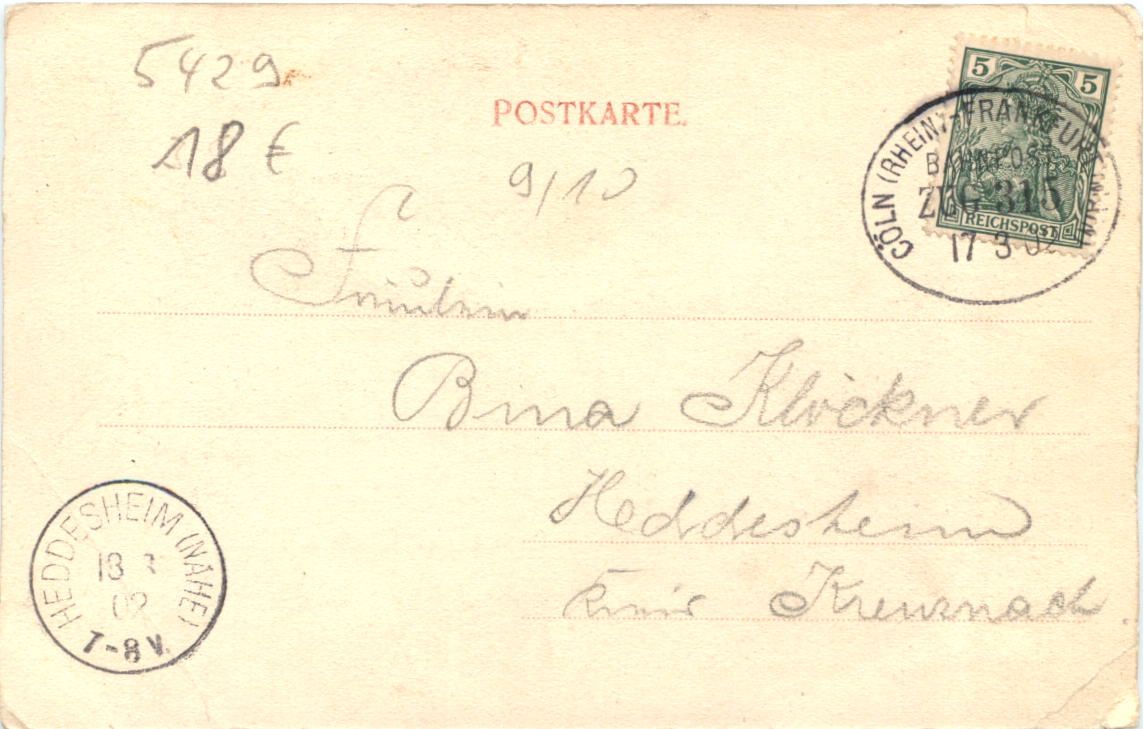 5429
18 €
POSTKARTE.
9/10
5 5
REICHSPOST
CÖLN (RHEIN)-FRANKFURT
BAHNPOST
ZUG 315
17 3 02
Fräulein
Bina Klöckner
Heddesheim
Kreis Kreuznach.
HEDDESHEIM (NAHE)
18 3
02
7-8 V.